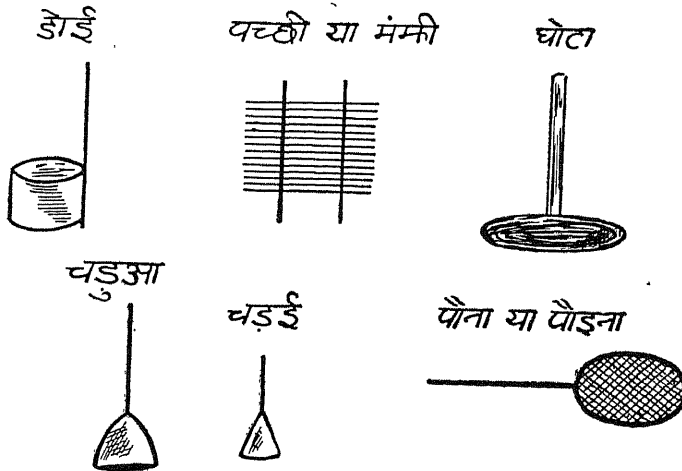 डोई
पच्छी या मंझी
घोटा
चड़ुआ
चड़ई
पौना या पौइना